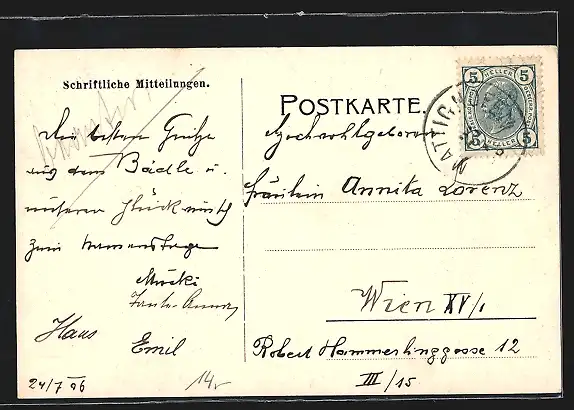 Schriftliche Mitteilungen.
Die besten Grüße
aus dem Bädle u.
unseren Glückwunsch
zum Namenstage
Mucki
Tante Anna
Hans
Emil
24/7 06
14,-
POSTKARTE.
5 HELLER 5
5 HELLER 5
MATTIGH
Hochwohlgeboren
Fräulein Annita Lorenz
Wien XV/1
Robert Hammerlinggasse 12
III/15